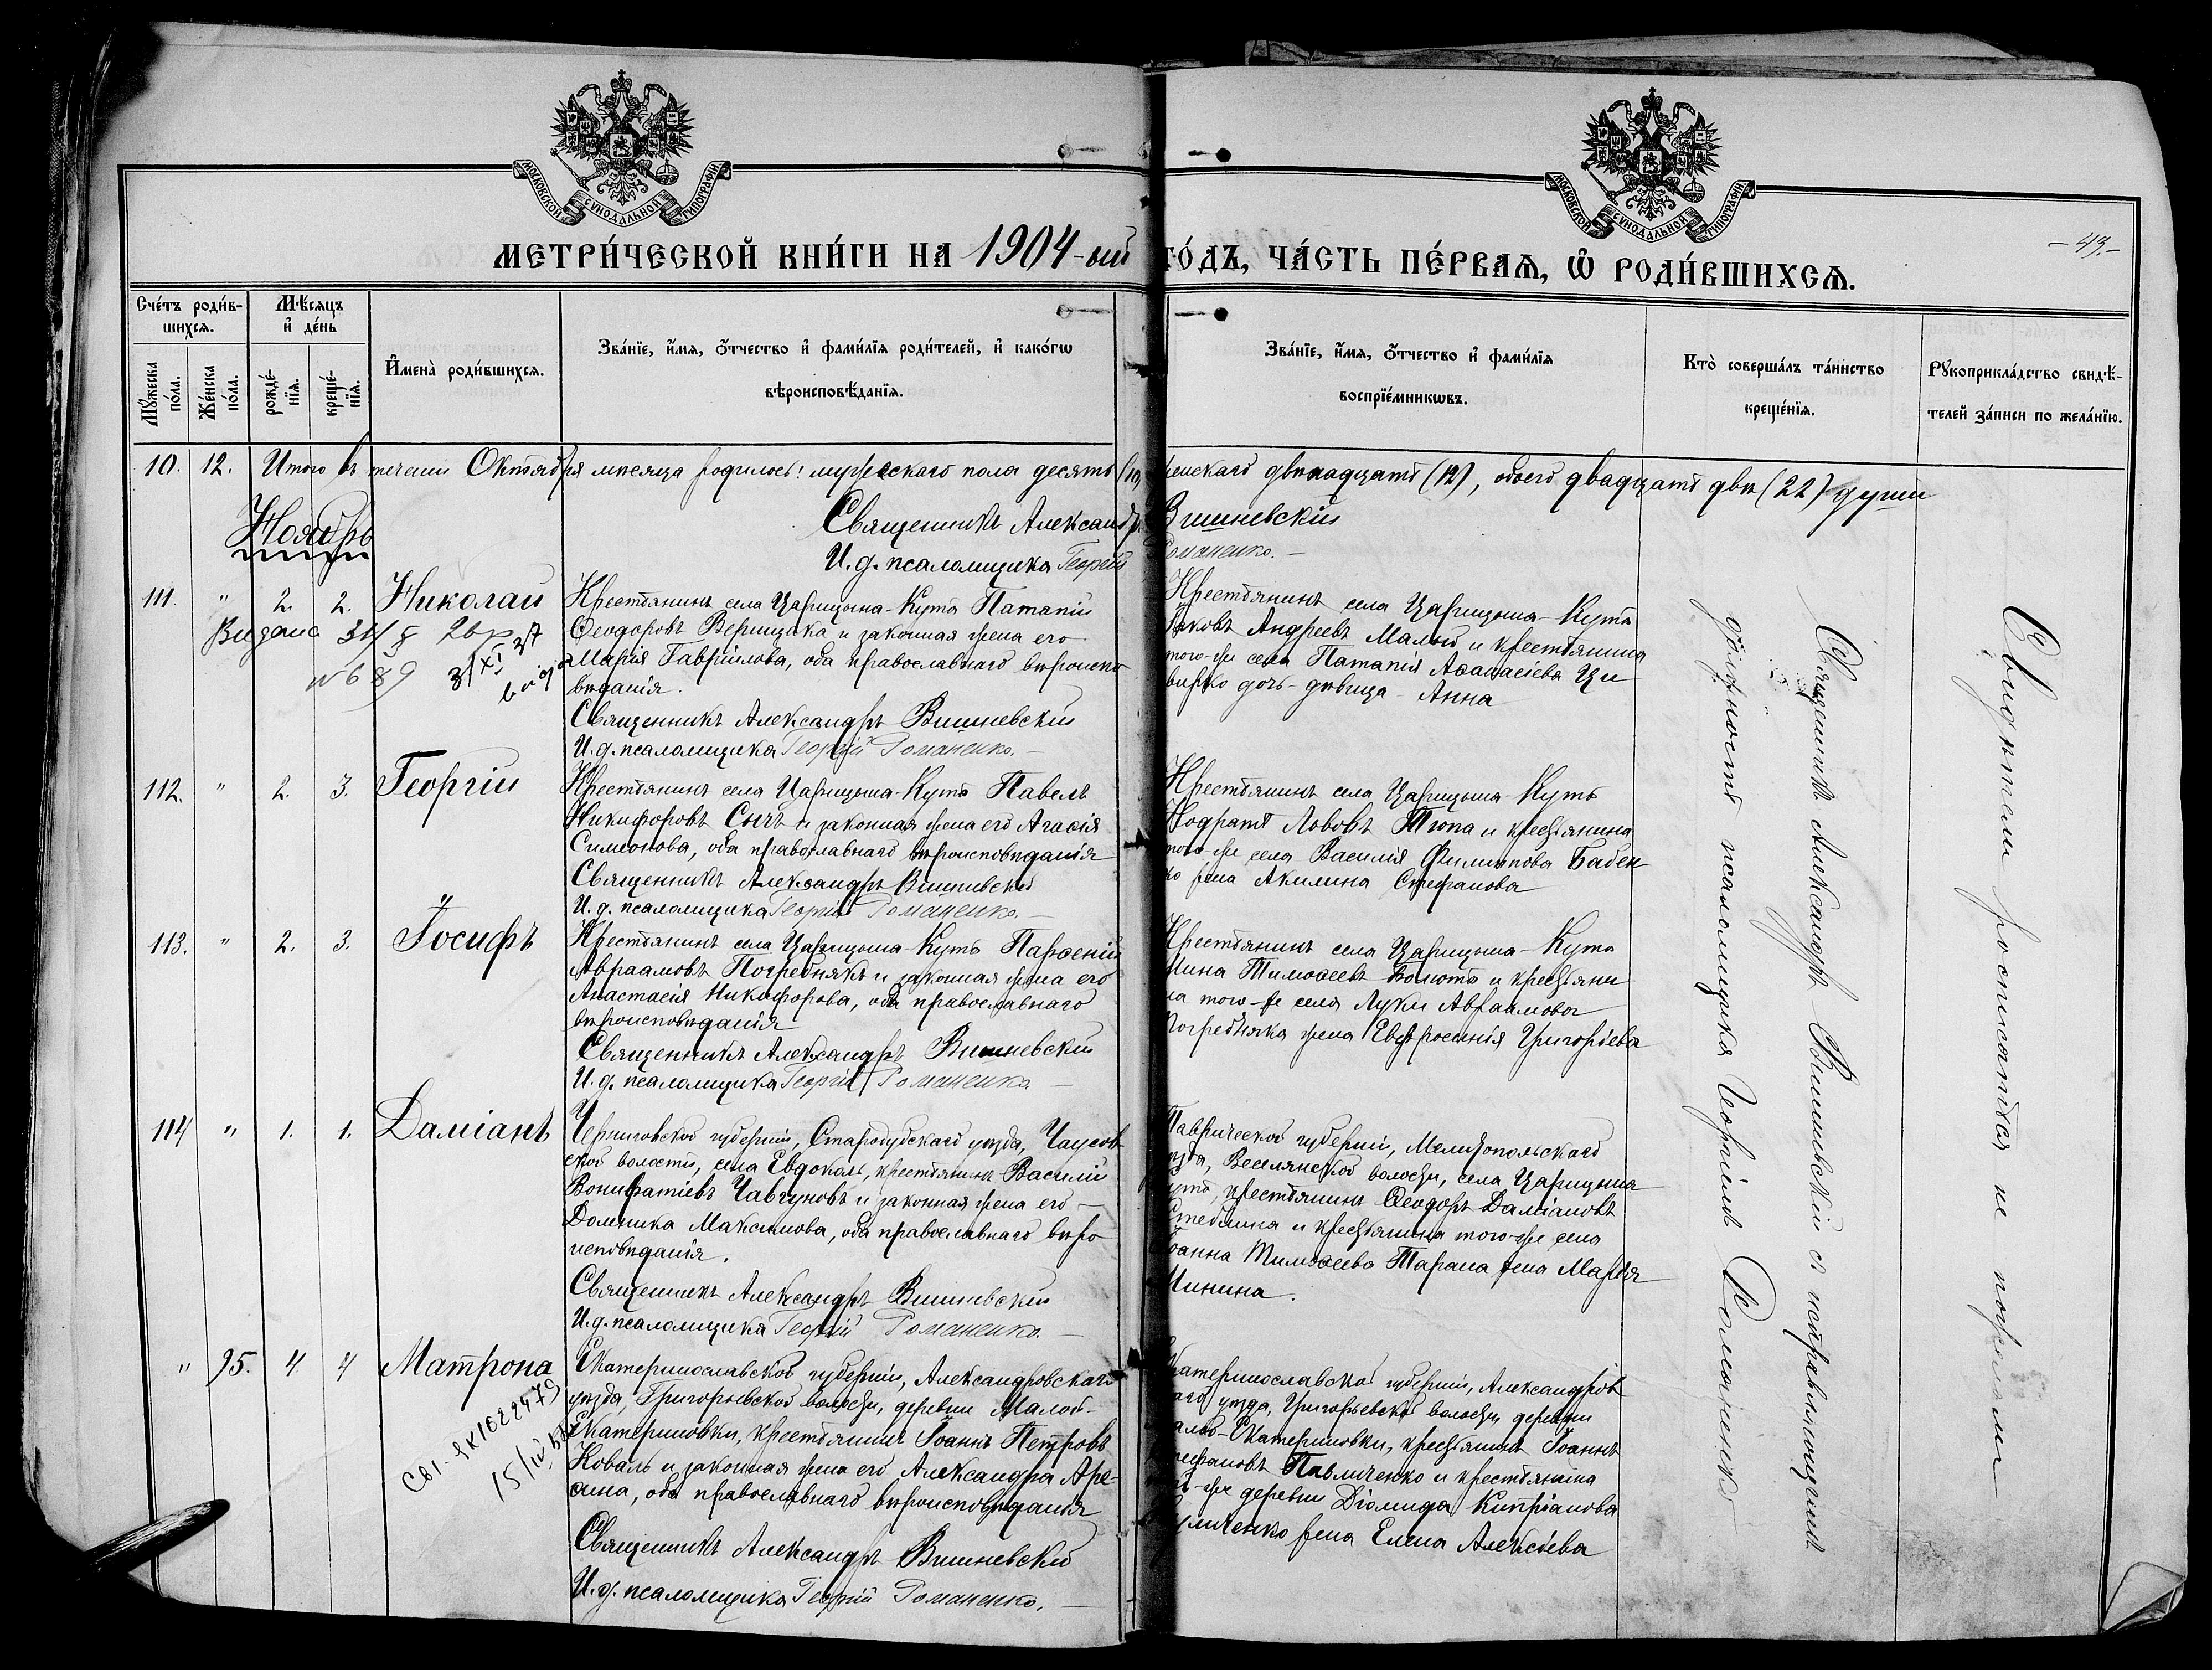 МОСКОВСКОЙ СѴНОДАЛЬНОЙ ТИПОГРАФІИ
МОСКОВСКОЙ СѴНОДАЛЬНОЙ ТИПОГРАФІИ
МЕТРИ́ЧЕСКОЙ КНИ́ГИ НА 1904-ый
ГО́ДЪ, ЧА́СТЬ ПЕ́РВАѦ, Ѽ РОДИ́ВШИХСѦ.
-43.-
Сче́тъ роди́в-
шихсѧ.
Мѣ́сѧцъ
и҆ де́нь
Мꙋ́жеска
по́ла.
Же́нска
по́ла.
рожде́-
нїѧ.
креще́-
нїѧ.
И҆мена̀ роди́вшихсѧ.
Зва́нїе, и҆́мѧ, ѻ҆́тчество и҆ фами́лїѧ роди́телей, и҆ како́гѡ
вѣроисповѣ́данїѧ.
Зва́нїе, и҆́мѧ, ѻ҆́тчество и҆ фами́лїѧ
воспрїе́мникѡвъ.
Кто̀ соверша́лъ та́инство
креще́нїѧ.
Рꙋкоприкла́дство свидѣ́-
телей за́писи по жела́нїю.
10. 12. Итого въ течении Октября месяца родилось: мужескаго пола десять (10)
женскаго двенадцать (12), обоего двадцать две (22) души
Ноябрь
Священникъ Александръ Вишневскій
И. д. псаломщика Георгій Романенко.
111. " 2. 2. Николай
№ 689
Крестьянинъ села Царицына-Кута Патапій
Ѳеодоровъ Верищака и законная жена его
Марія Гавріилова, оба православнаго вѣроиспо
вѣданія.
Священникъ Александръ Вишневскій
И. д. псаломщика Георгій Романенко.
Крестьянинъ села Царицына-Кута
Яковъ Андреевъ Малый и крестьянина
того-же села Патапія Аѳанасіева Ци
дочь-дѣвица Анна
112. " 2. 3. Георгій
Крестьянинъ села Царицына-Кута Павелъ
Никифоровъ Сычъ и законная жена его Агаѳія
Симеонова, оба православнаго вѣроисповѣданія
Священникъ Александръ Вишневскій
И. д. псаломщика Георгій Романенко.
Крестьянинъ села Царицына-Кута
Кодратъ Лововъ Тюпа и крестьянина
того-же села Василія Филиппова Бабен
ко жена Акилина Стефанова
113. " 2. 3. Іосифъ
Крестьянинъ села Царицына-Кута Парѳеній
Авраамовъ Погребнякъ и законная жена его
Анастасія Никифорова, оба православнаго
вѣроисповѣданія
Священникъ Александръ Вишневскій
И. д. псаломщика Георгій Романенко
Крестьянинъ села Царицына-Кута
Мина Тимоѳеевъ и крестьяни
на того-же села Луки Авраамова
Погребняка жена Евфросинія Григорьева
114 " 1. 1. Даміанъ
Черниговской губерніи, Стародубскаго уѣзда, Чаусов
ской волости, села Евдоколь, крестьянинъ Василій
Вонифатіевъ Чавгуновъ и законная жена его
Домника Максимова, оба православнаго вѣро
исповѣданія.
Священникъ Александръ Вишневскій
И. д. псаломщика Георгій Романенко.
Таврической губерніи, Мелитопольскаго
уѣзда, Веселянской волости, села Царицына
Кута, крестьянинъ Ѳеодоръ Даміановъ
Стеблина и крестьянина того-же села
Іоанна Тимоѳеева Тарана жена Марѳа
Минина.
" 95. 4 4 Матрона
15/IV
Екатеринославской губерніи, Александровскаго
уѣзда, Григорьевской волости, деревни Малой-
Екатериновки, крестьянинъ Іоаннъ Петровъ
Коваль и законная жена его Александра Аре
ѳина, оба православнаго вѣроисповѣданія
Священникъ Александръ Вишневскій
И. д. псаломщика Георгій Романенко.
Екатеринославской губерніи, Александров
скаго уѣзда, Григорьевской волости деревни
Малой-Екатериновки, крестьянинъ Іоаннъ
Стефановъ Павличенко и крестьянина
той-же деревни Діомида Кипріанова
жена Елена Алексіева
Священникъ Александръ Вишневскій и исправляющимъ
должность псаломщика Георгіемъ Романенко
Свидетели росписаться не пожелали